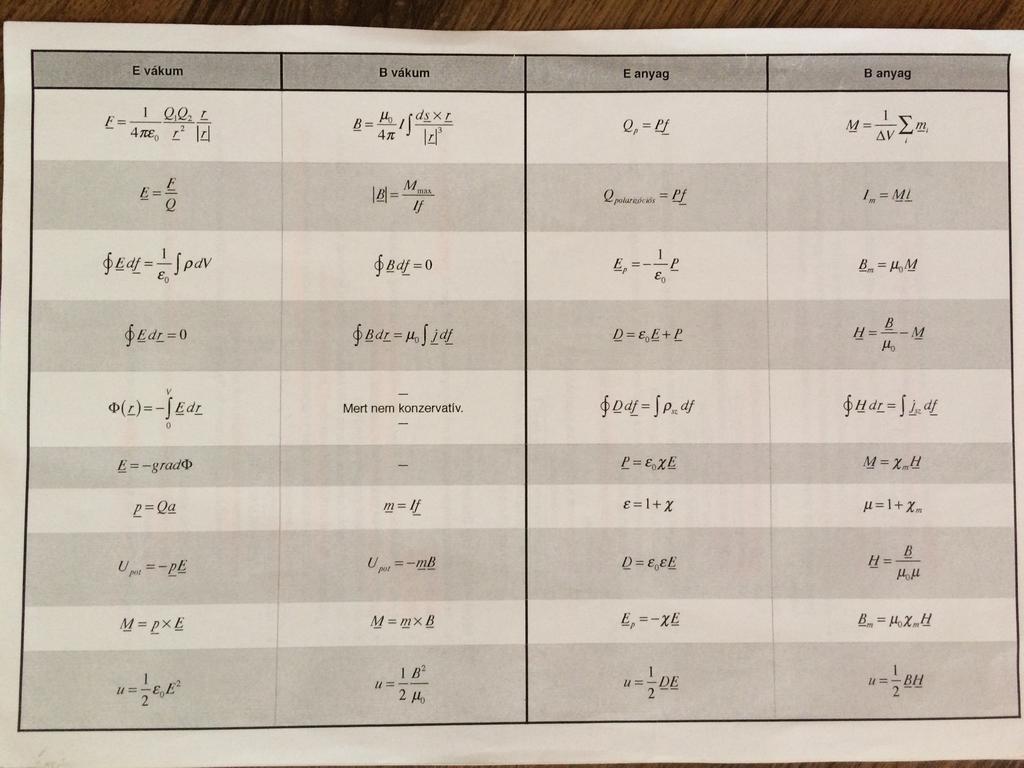 E vákum B vákum E anyag B anyag
F = 1/(4πε₀) Q₁Q₂/r² r/|r| B = μ₀/(4π) I∫ ds × r/|r|³ Qₚ = Pf M = 1/ΔV ∑ᵢ mᵢ
E = F/Q |B| = M_max/If Q_polarizációs = Pf I_m = Ml
∮E df = 1/ε₀ ∫ρ dV ∮B df = 0 E_p = −1/ε₀ P B_m = μ₀M
∮E dr = 0 ∮B dr = μ₀∫j df D = ε₀E + P H = B/μ₀ − M
Φ(r) = −∫₀^V E dr – Mert nem konzervatív. – ∮D df = ∫ρ_sz df ∮H dr = ∫j_sz df
E = −gradΦ – P = ε₀χE M = χ_mH
p = Qa m = If ε = 1 + χ μ = 1 + χ_m
U_pot = −pE U_pot = −mB D = ε₀εE H = B/(μ₀μ)
M = p × E M = m × B E_p = −χE B_m = μ₀χ_mH
u = 1/2 ε₀E² u = 1/2 B²/μ₀ u = 1/2 DE u = 1/2 BH